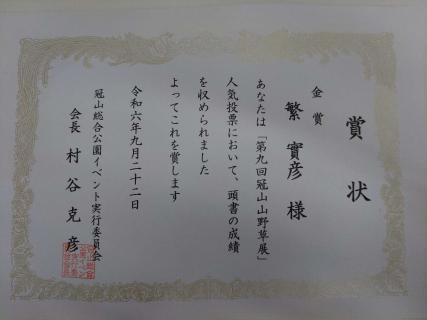 賞状
金賞
繁 實彦 様
あなたは「第九回冠山山野草展」
人気投票において、頭書の成績
を収められました
よってこれを賞します
令和六年九月二十二日
冠山総合公園イベント実行委員会
会長 村谷克彦